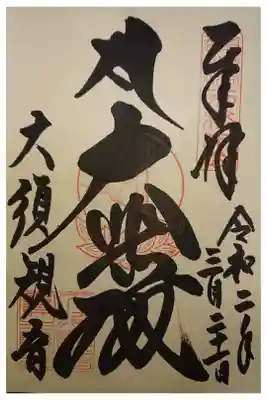 奉拝
令和二年
三月二十一日
大悲殿
大須観音